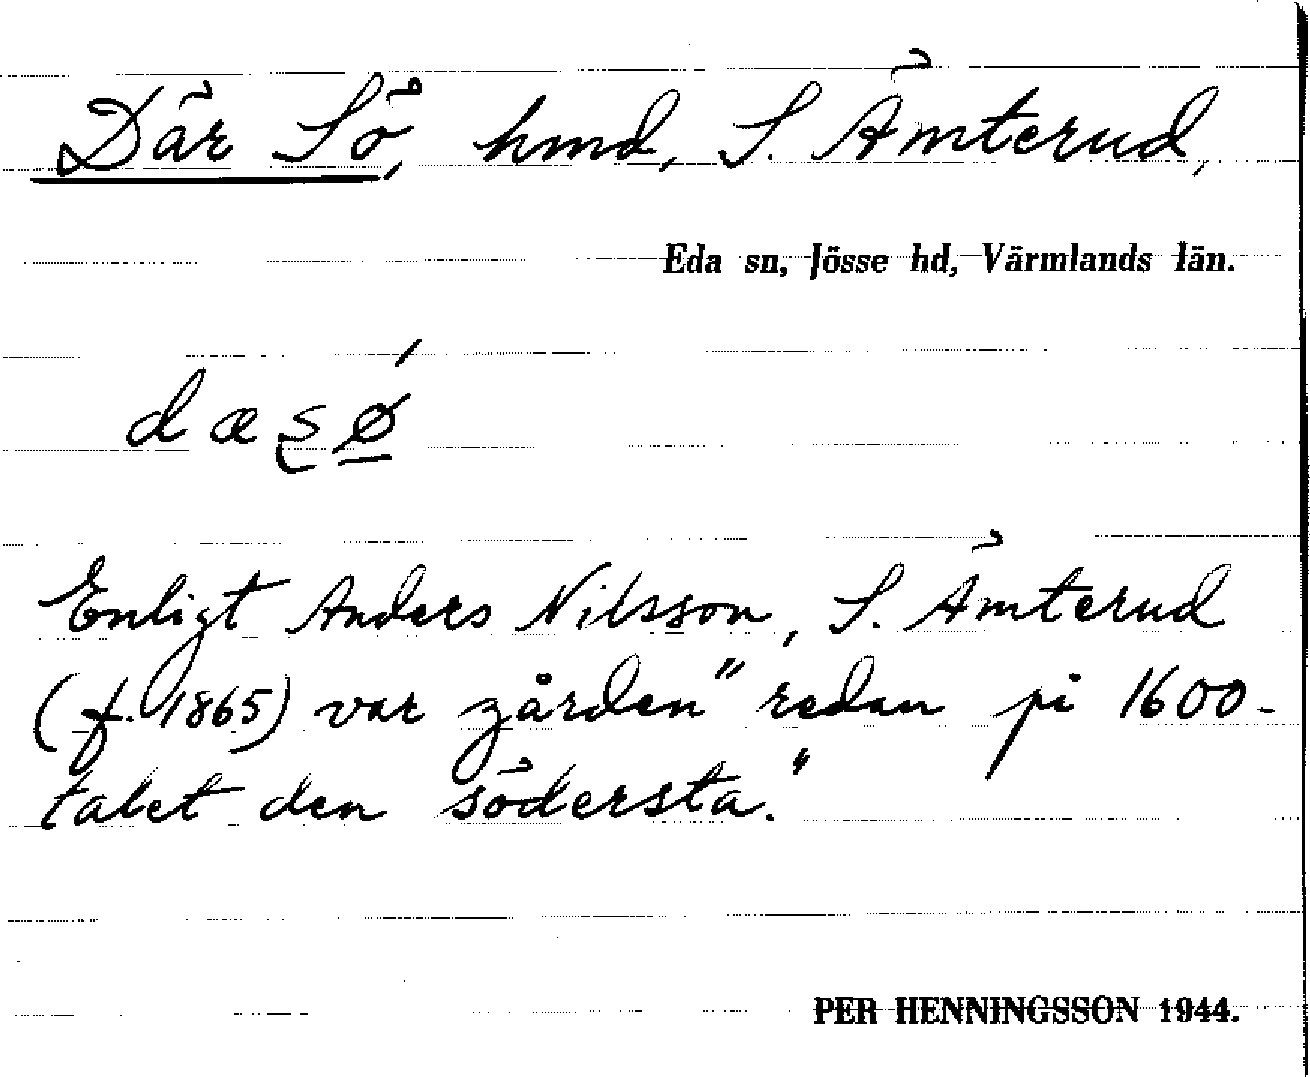 Där Sö, hmd, S. Ämterud,
Eda sn, Jösse hd, Värmlands län.
dæʂǿ̲
Enligt Anders Nilsson, S. Ämterud
(f. 1865) var gården "redan på 1600-
talet den södersta."
PER HENNINGSSON 1944.